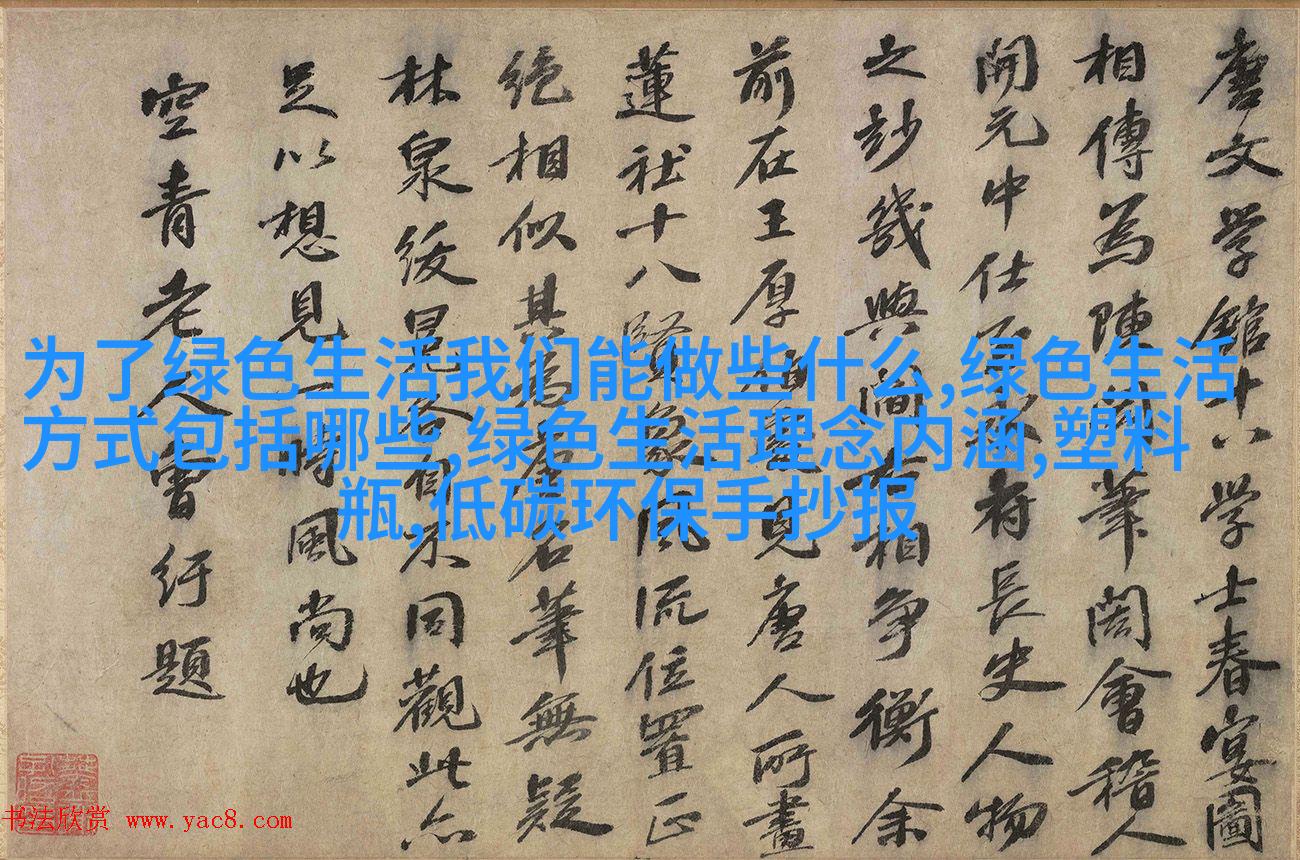 唐文学館十八学士春宴圖
相傳為陳閎筆閎會稽人
開元中仕府長史人物
之妙幾與閻相争衡余
前在王厚見唐人所畫
蓮社十八賢象風流位置正
绝相似其為名筆無疑
林泉綏冕各自不同觀此亦
足以想見一時風尚也
空青老人曾紆題
为了绿色生活我们能做些什么,绿色生活
方式包括哪些,绿色生活理念内涵,塑料
瓶,低碳环保手抄报
书法欣赏 www.yac8.com